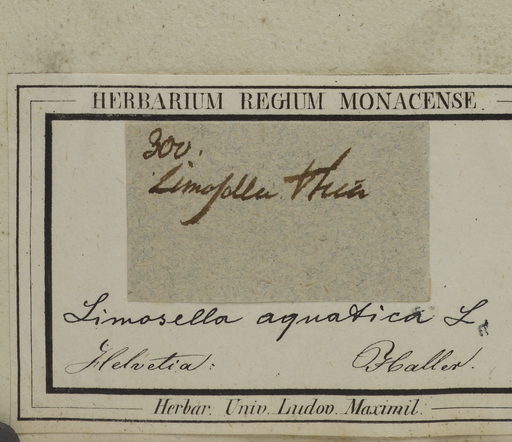 HERBARIUM REGIUM MONACENSE
300.
Limosella
Limosella aquatica L.
Helvetia: Haller.
Herbar. Univ. Ludov. Maximil.